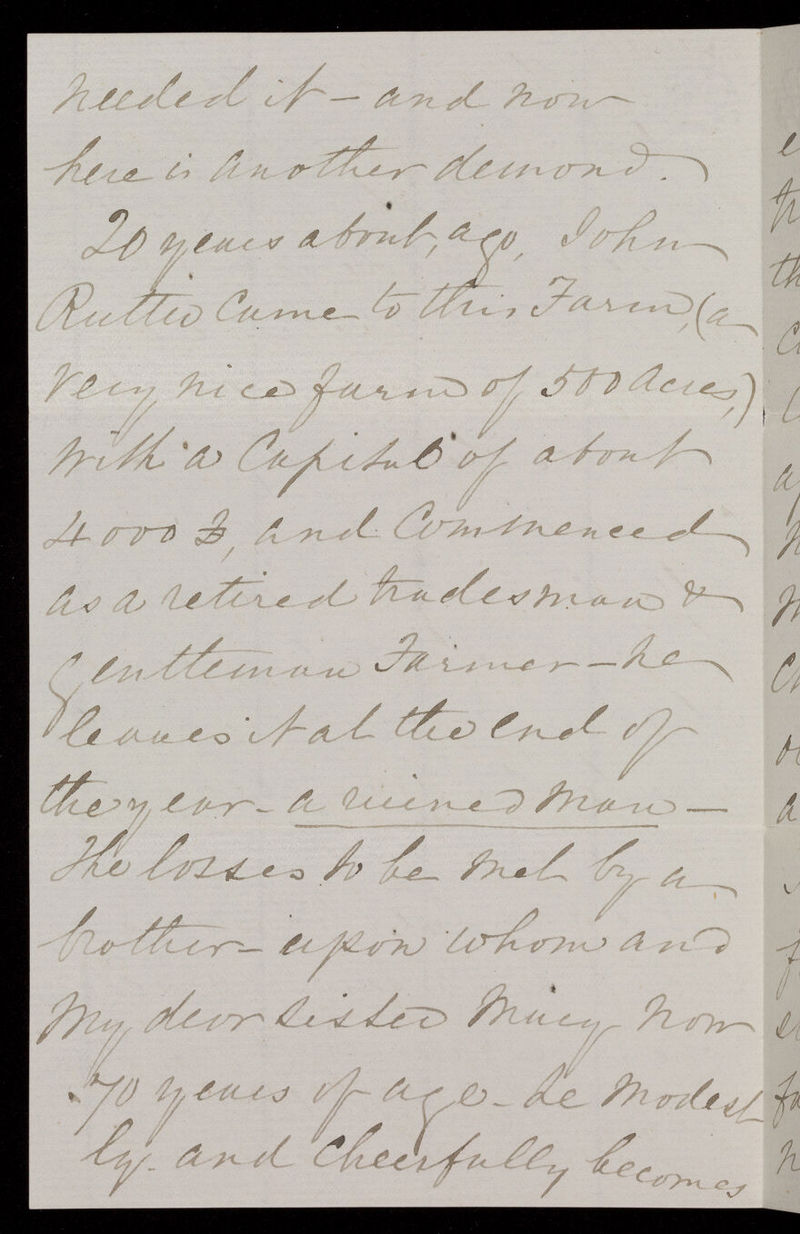 needed it – and now
here is another demand.
20 years about, ago, John
Rutter came to this Farm, (a
very nice farm of 500 acres,)
with a Capital of about
4000 £, and Commenced
as a retired tradesman &
gentleman Farmer – he
leaves it at the end of
the year – a ruined man –
The losses to be met by a
brother – upon whom and
my dear sister Mary now
70 years of age – he modest
ly and cheerfully becomes